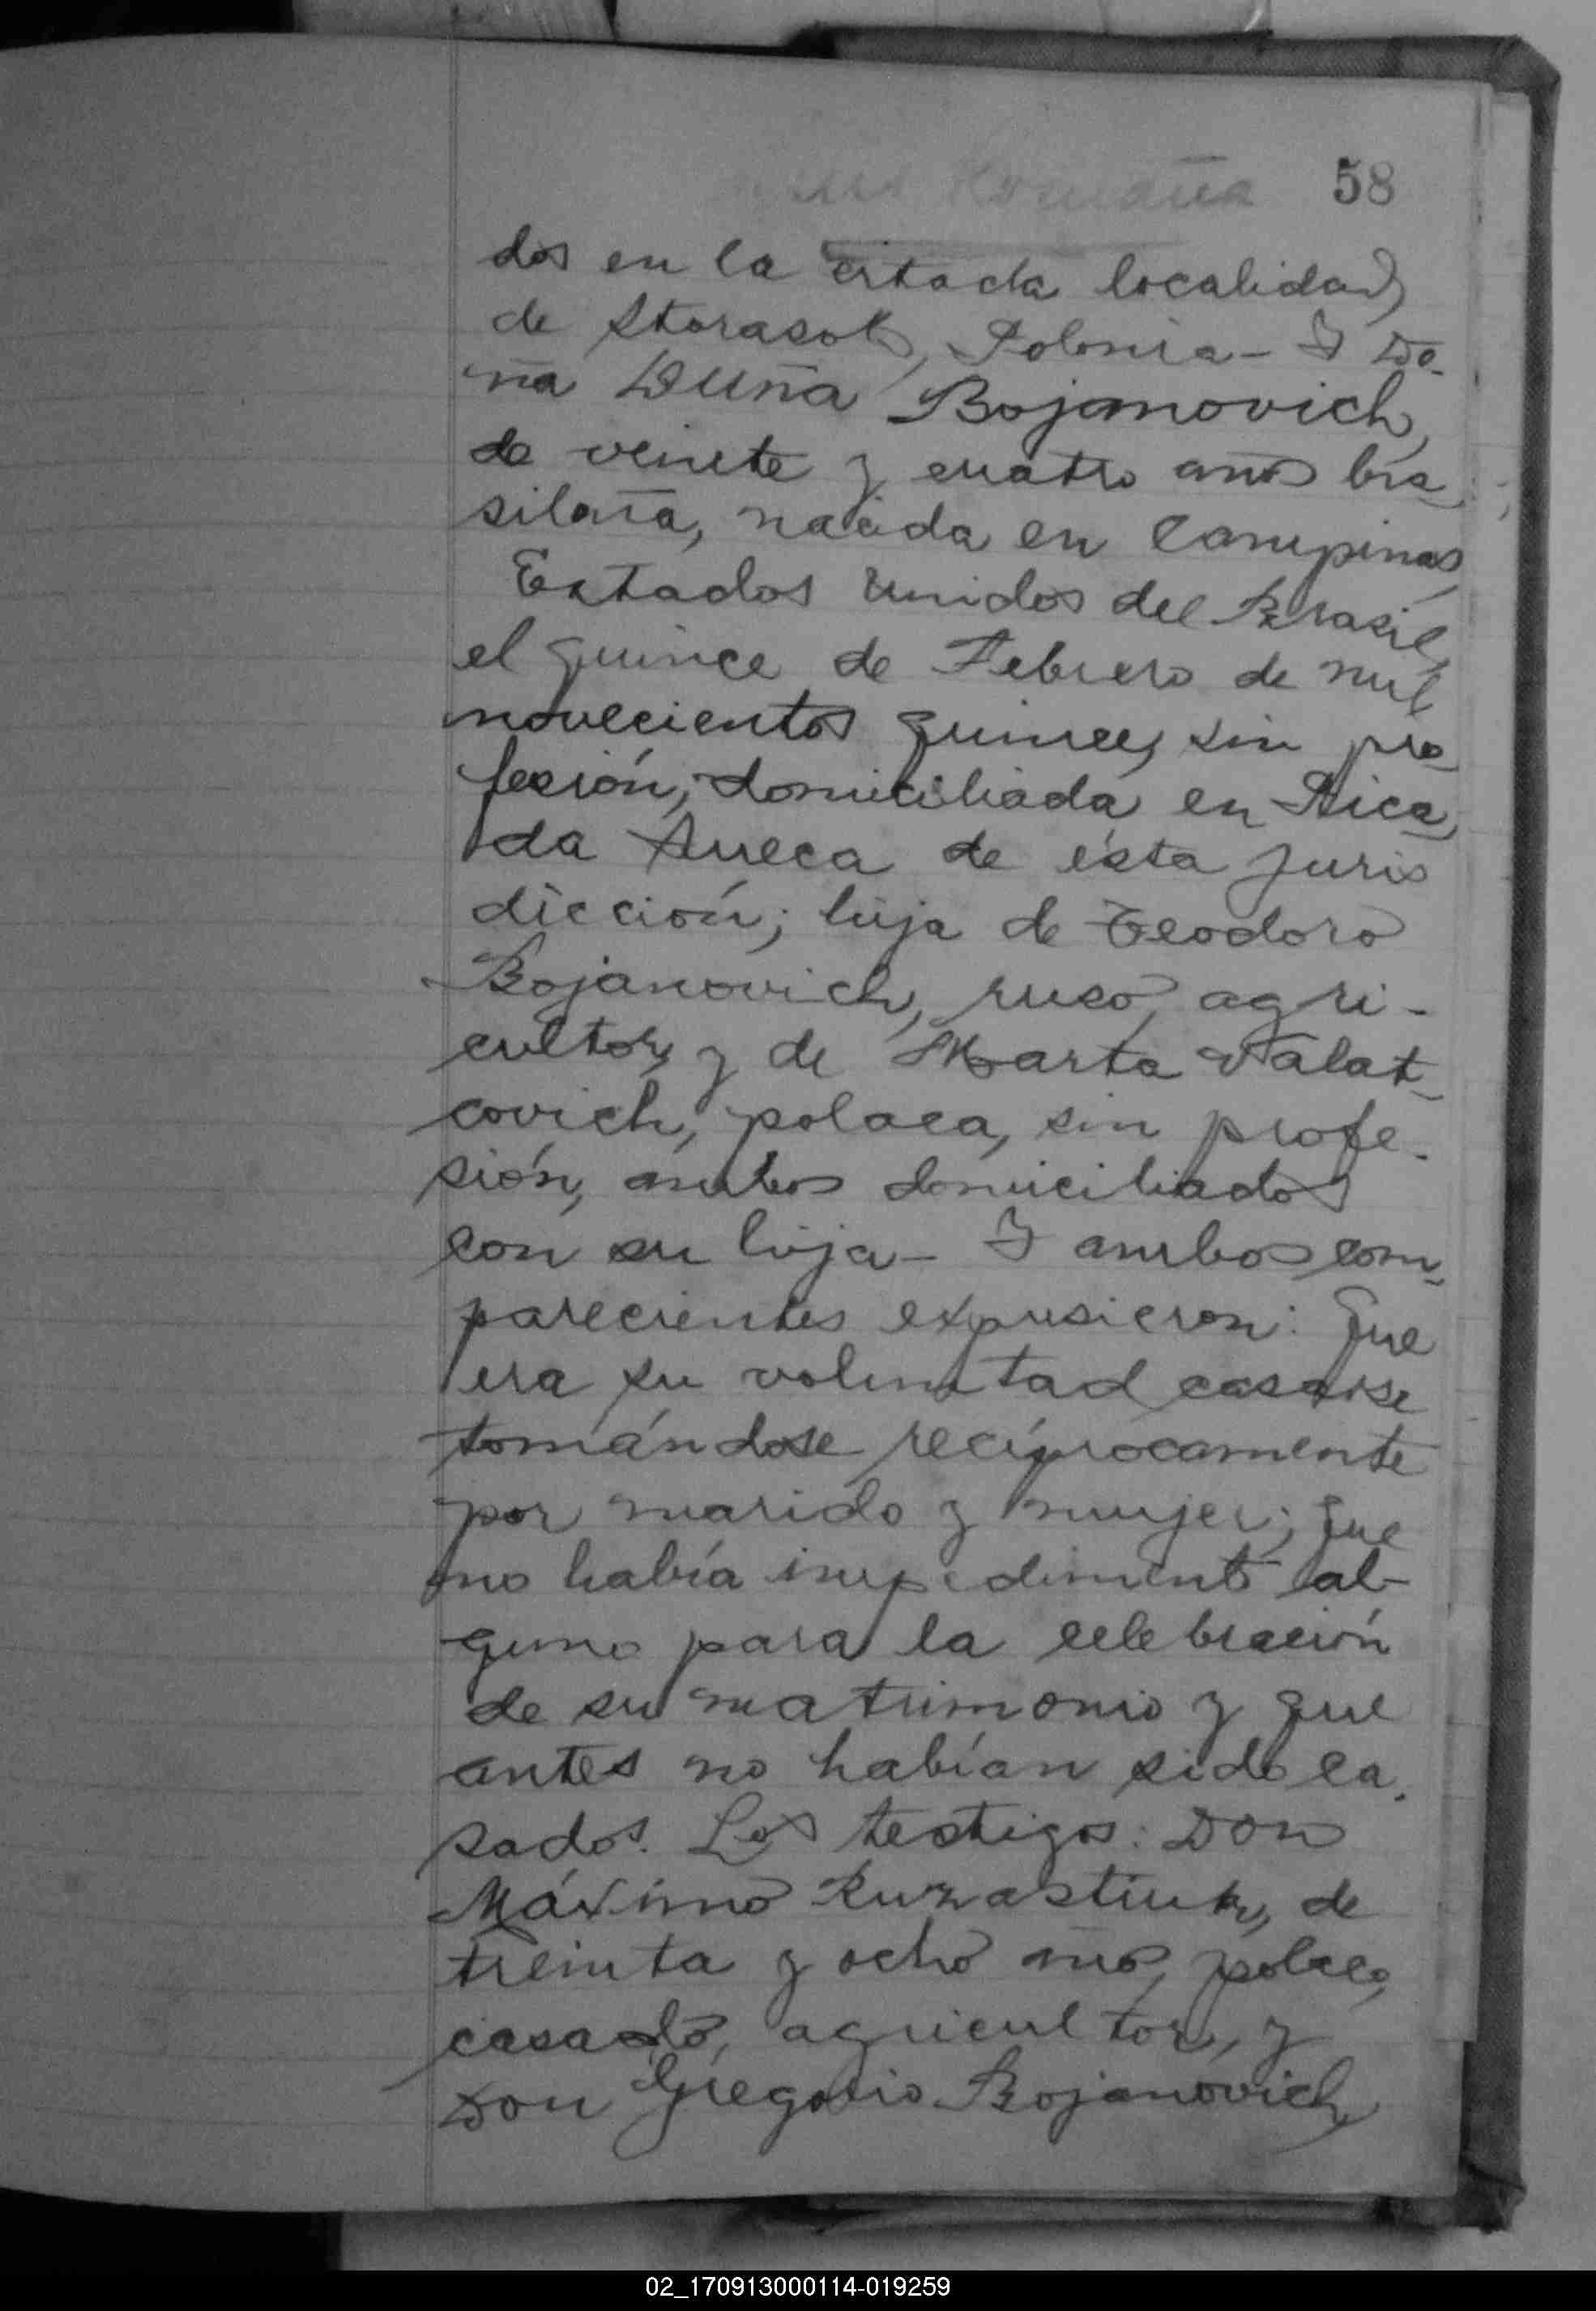 58
dos en la citada localidad
de Storasol, Polonia - Y Do-
ña Duña Bojanovich,
de veinte y cuatro años bra
sileña, nacida en Campinas,
Estados Unidos del Brasil,
el quince de Febrero de mil
novecientos quince, sin pro
fesión, domiciliada en Pica
da Sueca de ésta juris
dicción; hija de Teodoro
Bojanovich, ruso, agri-
cultor, y de Marta Valat-
covich, polaca, sin profe-
sión, ambos domiciliados
con su hija - Y ambos com-
parecientes expusieron: Que
era su voluntad casarse
tomándose recíprocamente
por marido y mujer; que
no había impedimento al-
guno para la celebración
de su matrimonio y que
antes no habían sido ca-
sados. Los testigos: Don
Máximo Ruzastiuk, de
treinta y ocho años, polaco,
casado, agricultor, y
Don Gregorio Bojanovich,
02_170913000114-019259